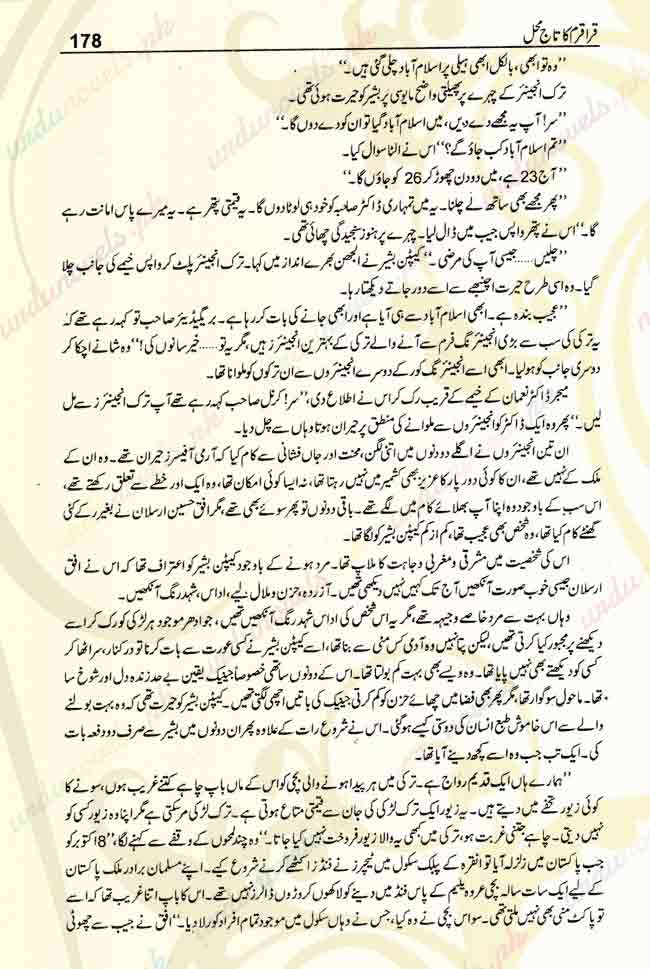 قراقرم کا تاج محل
178
"وہ تو ابھی، بالکل ابھی ہیلی پر اسلام آباد چلی گئی ہیں۔"
ترک انجینئر کے چہرے پر پھیلتی واضح مایوسی پر بشیر کو حیرت ہوئی تھی۔
"سر! آپ یہ مجھے دے دیں، میں اسلام آباد گیا تو ان کو دے دوں گا۔"
"تم اسلام آباد کب جاؤ گے؟" اس نے الٹا سوال کیا۔
"آج 23 ہے، میں دو دن چھوڑ کر 26 کو جاؤں گا۔"
"پھر مجھے بھی ساتھ لے چلنا۔ یہ میں تمہاری ڈاکٹر صاحبہ کو خود ہی لوٹا دوں گا۔ یہ قیمتی پتھر ہے۔ یہ میرے پاس امانت رہے
گا۔" اس نے پتھر واپس جیب میں ڈال لیا۔ چہرے پر ہنوز سنجیدگی چھائی تھی۔
"چلیں......جیسی آپ کی مرضی۔" کیپٹن بشیر نے الجھن بھرے انداز میں کہا۔ ترک انجینئر پلٹ کر واپس خیمے کی جانب چلا
گیا۔ وہ اسی طرح حیرت اچنبھے سے اسے دور جاتے دیکھتا رہا۔
"عجیب بندہ ہے۔ ابھی اسلام آباد سے ہی آیا ہے اور ابھی جانے کی بات کر رہا ہے۔ بریگیڈیئر صاحب تو کہہ رہے تھے کہ
یہ ترکی کی سب سے بڑی انجینئرنگ فرم سے آنے والے ترکی کے بہترین انجینئرز ہیں، مگر یہ تو......خیر سانوں کی!" وہ شانے اچکا کر
دوسری جانب کو ہولیا۔ ابھی اسے انجینئرنگ کور کے دوسرے انجینئروں سے ان ترکوں کو ملوانا تھا۔
میجر ڈاکٹر نعمان کے خیمے کے قریب رک کر اس نے اطلاع دی، "سر! کرنل صاحب کہہ رہے تھے آپ ترک انجینئرز سے مل
لیں۔" پھر وہ ایک ڈاکٹر کو انجینئروں سے ملوانے کی منطق پر حیران ہوتا وہاں سے چل دیا۔
ان تین انجینئروں نے اگلے دو دنوں میں اتنی لگن، محنت اور جاں فشانی سے کام کیا کہ آرمی آفیسرز حیران تھے۔ وہ ان کے
ملک کے نہیں تھے، ان کا کوئی دور پار کا عزیز بھی کشمیر میں نہیں رہتا تھا، نہ ایسا کوئی امکان تھا، وہ ایک اور خطے سے تعلق رکھتے تھے،
اس سب کے باوجود وہ اپنا آپ بھلائے کام میں لگے تھے۔ باقی دونوں تو پھر سوئے بھی تھے، مگر افق حسین ارسلان نے بغیر رکے کئی
گھنٹے کام کیا تھا، وہ شخص بھی عجیب تھا، کم از کم کیپٹن بشیر کو لگا تھا۔
اس کی شخصیت میں مشرقی و مغربی وجاہت کا ملاپ تھا۔ مرد ہونے کے باوجود کیپٹن بشیر کو اعتراف تھا کہ اس نے افق
ارسلان جیسی خوب صورت آنکھیں آج تک کہیں نہیں دیکھی تھیں۔ آزردہ، حزن و ملال لیے، اداس، شہد رنگ آنکھیں۔
وہاں بہت سے مرد خاصے وجیہہ تھے، مگر یہ اس شخص کی اداس شہد رنگ آنکھیں تھیں، جو ادھر موجود ہر لڑکی کو رک کر اسے
دیکھنے پر مجبور کیا کرتی تھیں، لیکن پتا نہیں وہ آدمی کس مٹی سے بنا تھا، اسے کیپٹن بشیر نے کسی عورت سے بات کرنا تو درکنار، سر اٹھا کر
کسی کو دیکھتے بھی نہیں پایا تھا۔ وہ ویسے بھی بہت کم بولتا تھا۔ اس کے دونوں ساتھی خصوصاً جینیک یقین بے حد زندہ دل اور شوخ سا
تھا۔ ماحول سوگوار تھا، مگر پھر بھی فضا میں چھائے حزن کو کم کرتی جینیک کی باتیں اچھی لگتی تھیں۔ کیپٹن بشیر کو حیرت تھی کہ وہ بہت بولنے
والے سے اس خاموش طبع انسان کی دوستی کیسے ہو گئی۔ اس نے شروع رات کے علاوہ پھر ان دنوں میں بشیر سے صرف دو دفعہ بات
کی۔ ایک تب جب وہ اسے کچھ دینے آیا تھا۔
"ہمارے ہاں ایک قدیم رواج ہے۔ ترکی میں ہر پیدا ہونے والی بچی کو اس کے ماں باپ چاہے کتنے غریب ہوں، سونے کا
کوئی زیور تحفے میں دیتے ہیں۔ یہ زیور ایک ترک لڑکی کی جان سے قیمتی متاع ہوتی ہے۔ ترک لڑکی مر سکتی ہے مگر اپنا وہ زیور کسی کو
نہیں دیتی۔ چاہے جتنی غربت ہو، ترکی میں بھی یہ والا زیور فروخت نہیں کیا جاتا۔" وہ چند لمحوں کے وقفے سے کہنے لگا، "8 اکتوبر کو
جب پاکستان میں زلزلہ آیا تو انقرہ کے پبلک سکول میں ٹیچرز نے فنڈز اکٹھے کرنے شروع کیے۔ اپنے مسلمان برادر ملک پاکستان
کے لیے ایک سات سالہ بچی عروہ یلیم کے پاس فنڈ میں دینے کو لاکھوں کروڑوں ڈالرز نہیں تھے۔ اس کا باپ اتنا غریب تھا کہ اسے
تو پاکٹ منی بھی نہیں ملتی تھی۔ سو اس بچی نے وہ کیا، جس نے وہاں سکول میں موجود تمام افراد کو رلا دیا۔" افق نے جیب سے چھوٹی
urdunovels.pk